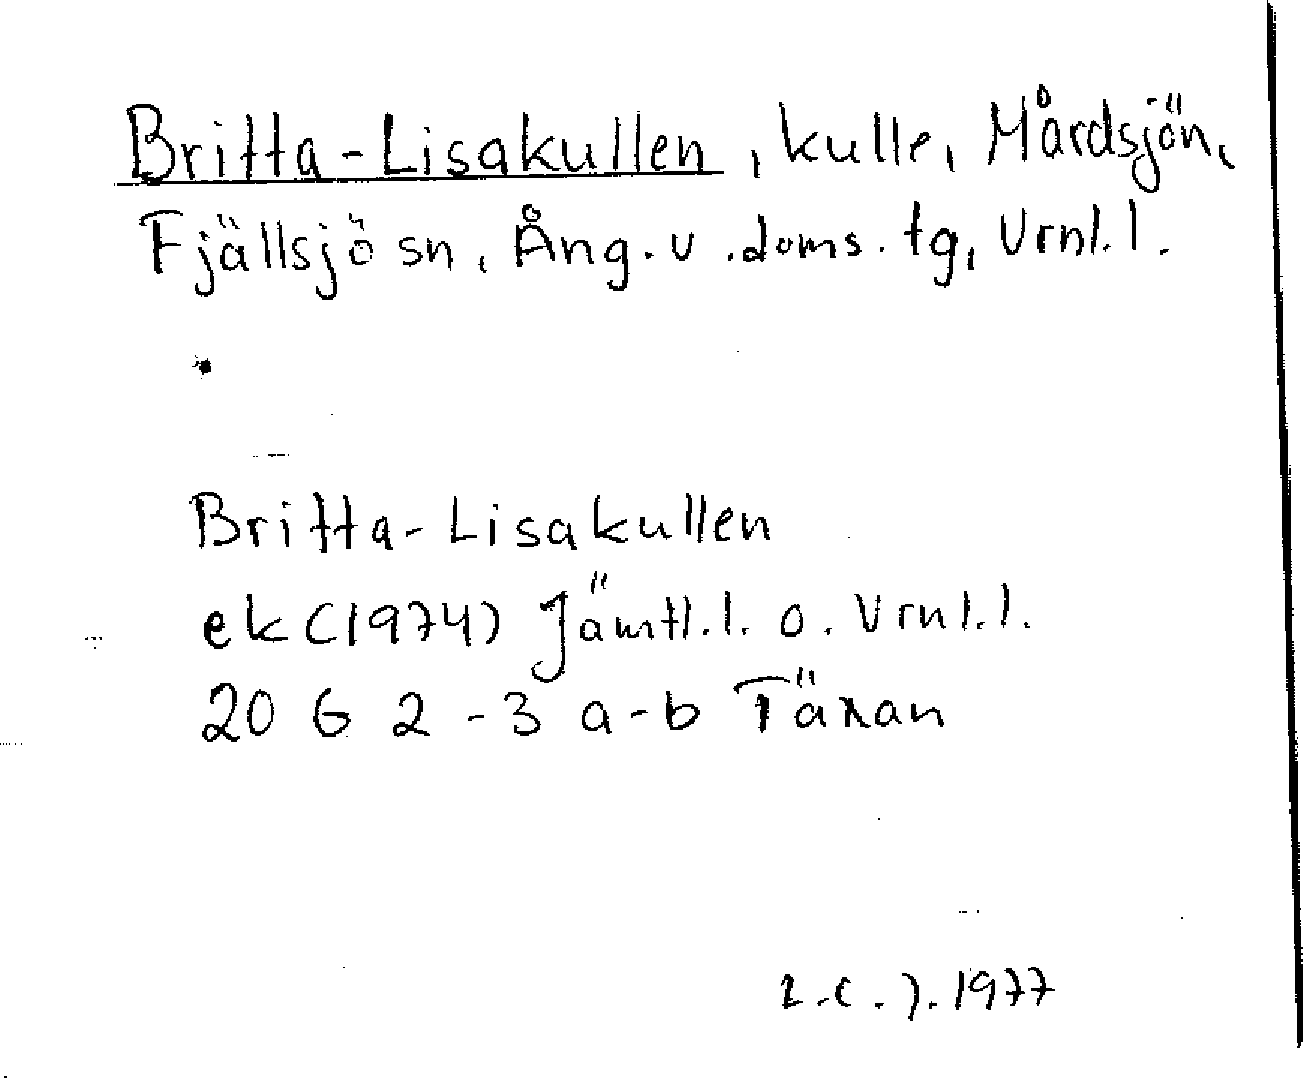 Britta-Lisakullen, kulle, Mårdsjön,
Fjällsjö sn, Ång. v. doms. tg, Vrnl. l.
Britta-Lisakullen
ek (1974) Jämtl. l. o. Vrnl. l.
20 G 2-3 a-b Täxan
1977